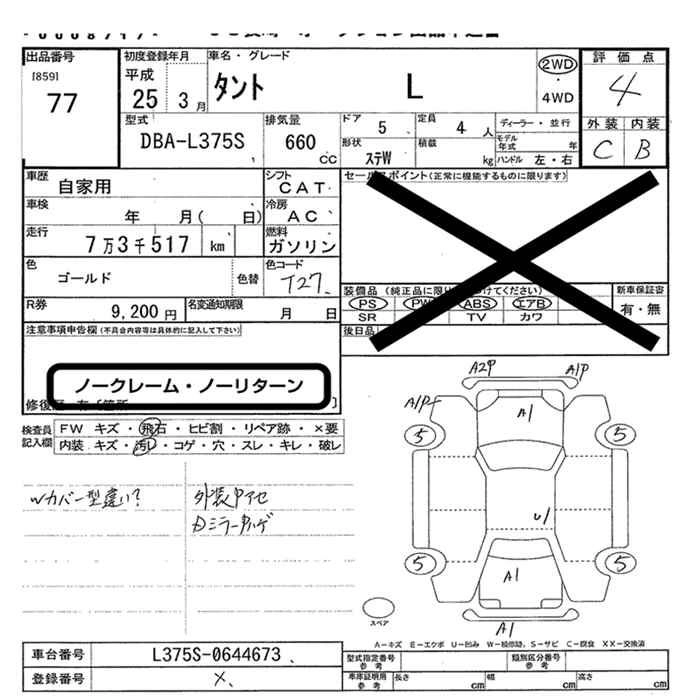 出品番号
[859]
77
初度登録年月
平成
25 3月
車名・グレード
タント L
2WD
・
4WD
評価点
4
外装 内装
C B
型式
DBA-L375S
排気量
660
cc
ドア
5
定員
4 人
形状
ステW
積載
kg
ディーラー・並行
モデル年式 年
ハンドル 左・右
車歴
自家用
シフト
CAT
車検
年 月( 日)
冷房
AC
走行
7万3千517 km
燃料
ガソリン
色
ゴールド
色替
色コード
T27
R券
9,200円
名変通知期限
月 日
セールスポイント(正常に機能するものに限ります)
装備品
PS PW ABS エアB
SR TV カワ
後日品
新車保証書
有・無
注意事項申告欄(不具合内容等は具体的に記入して下さい)
ノークレーム・ノーリターン
検査員記入欄
FW キズ・飛石・ヒビ割・リペア跡・×要
内装 キズ・汚レ・コゲ・穴・スレ・キレ・破レ
Wカバー型違い?
外装中アセ
A2P
A1P
A1P
A1
5
5
U1
5
5
A1
A1
スペア
A-キズ E-エクボ U-凹み W-補修跡, S-サビ C-腐食 XX-交換済
車台番号
L375S-0644673
登録番号
X
型式指定番号
参考
類別区分番号
参考
車庫証明用
参考
長さ cm
幅 cm
高さ cm